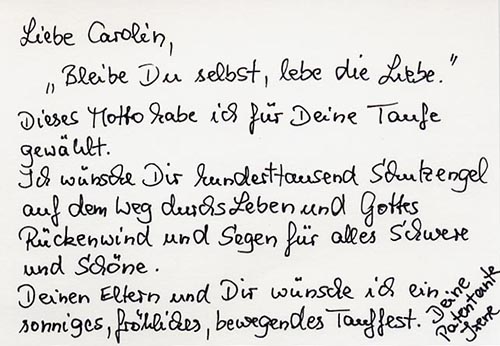 Liebe Carolin,
„Bleibe Du selbst, lebe die Liebe."
Dieses Motto habe ich für Deine Taufe
gewählt.
Ich wünsche Dir hunderttausend Schutzengel
auf dem Weg durchs Leben und Gottes
Rückenwind und Segen für alles Schwere
und Schöne.
Deinen Eltern und Dir wünsche ich ein
sonniges, fröhliches, bewegendes Tauffest.
Deine
Patentante
Irene